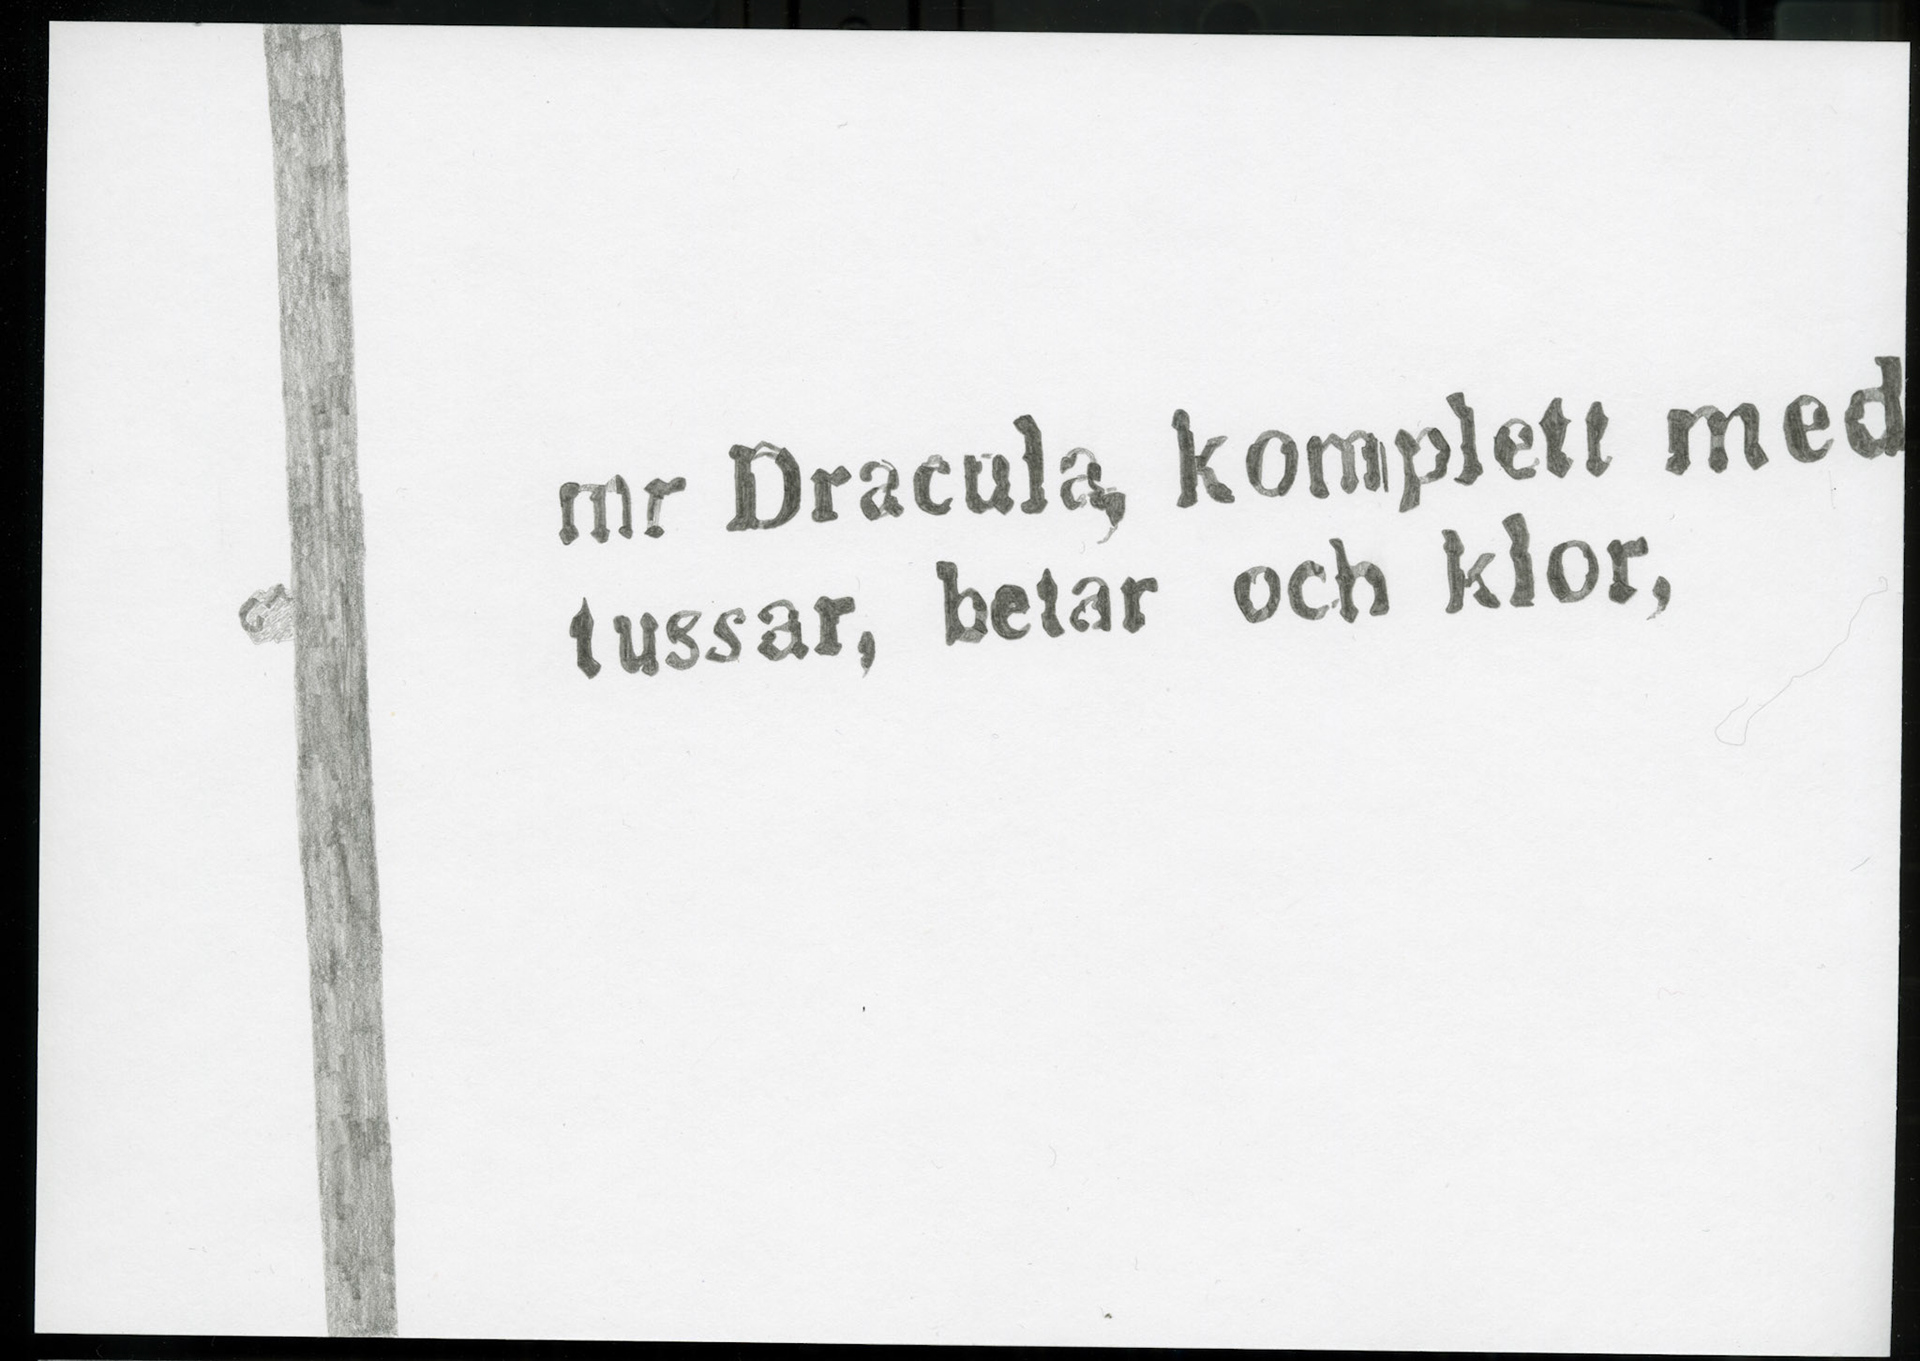 mr Dracula, komplett med
tussar, betar och klor,